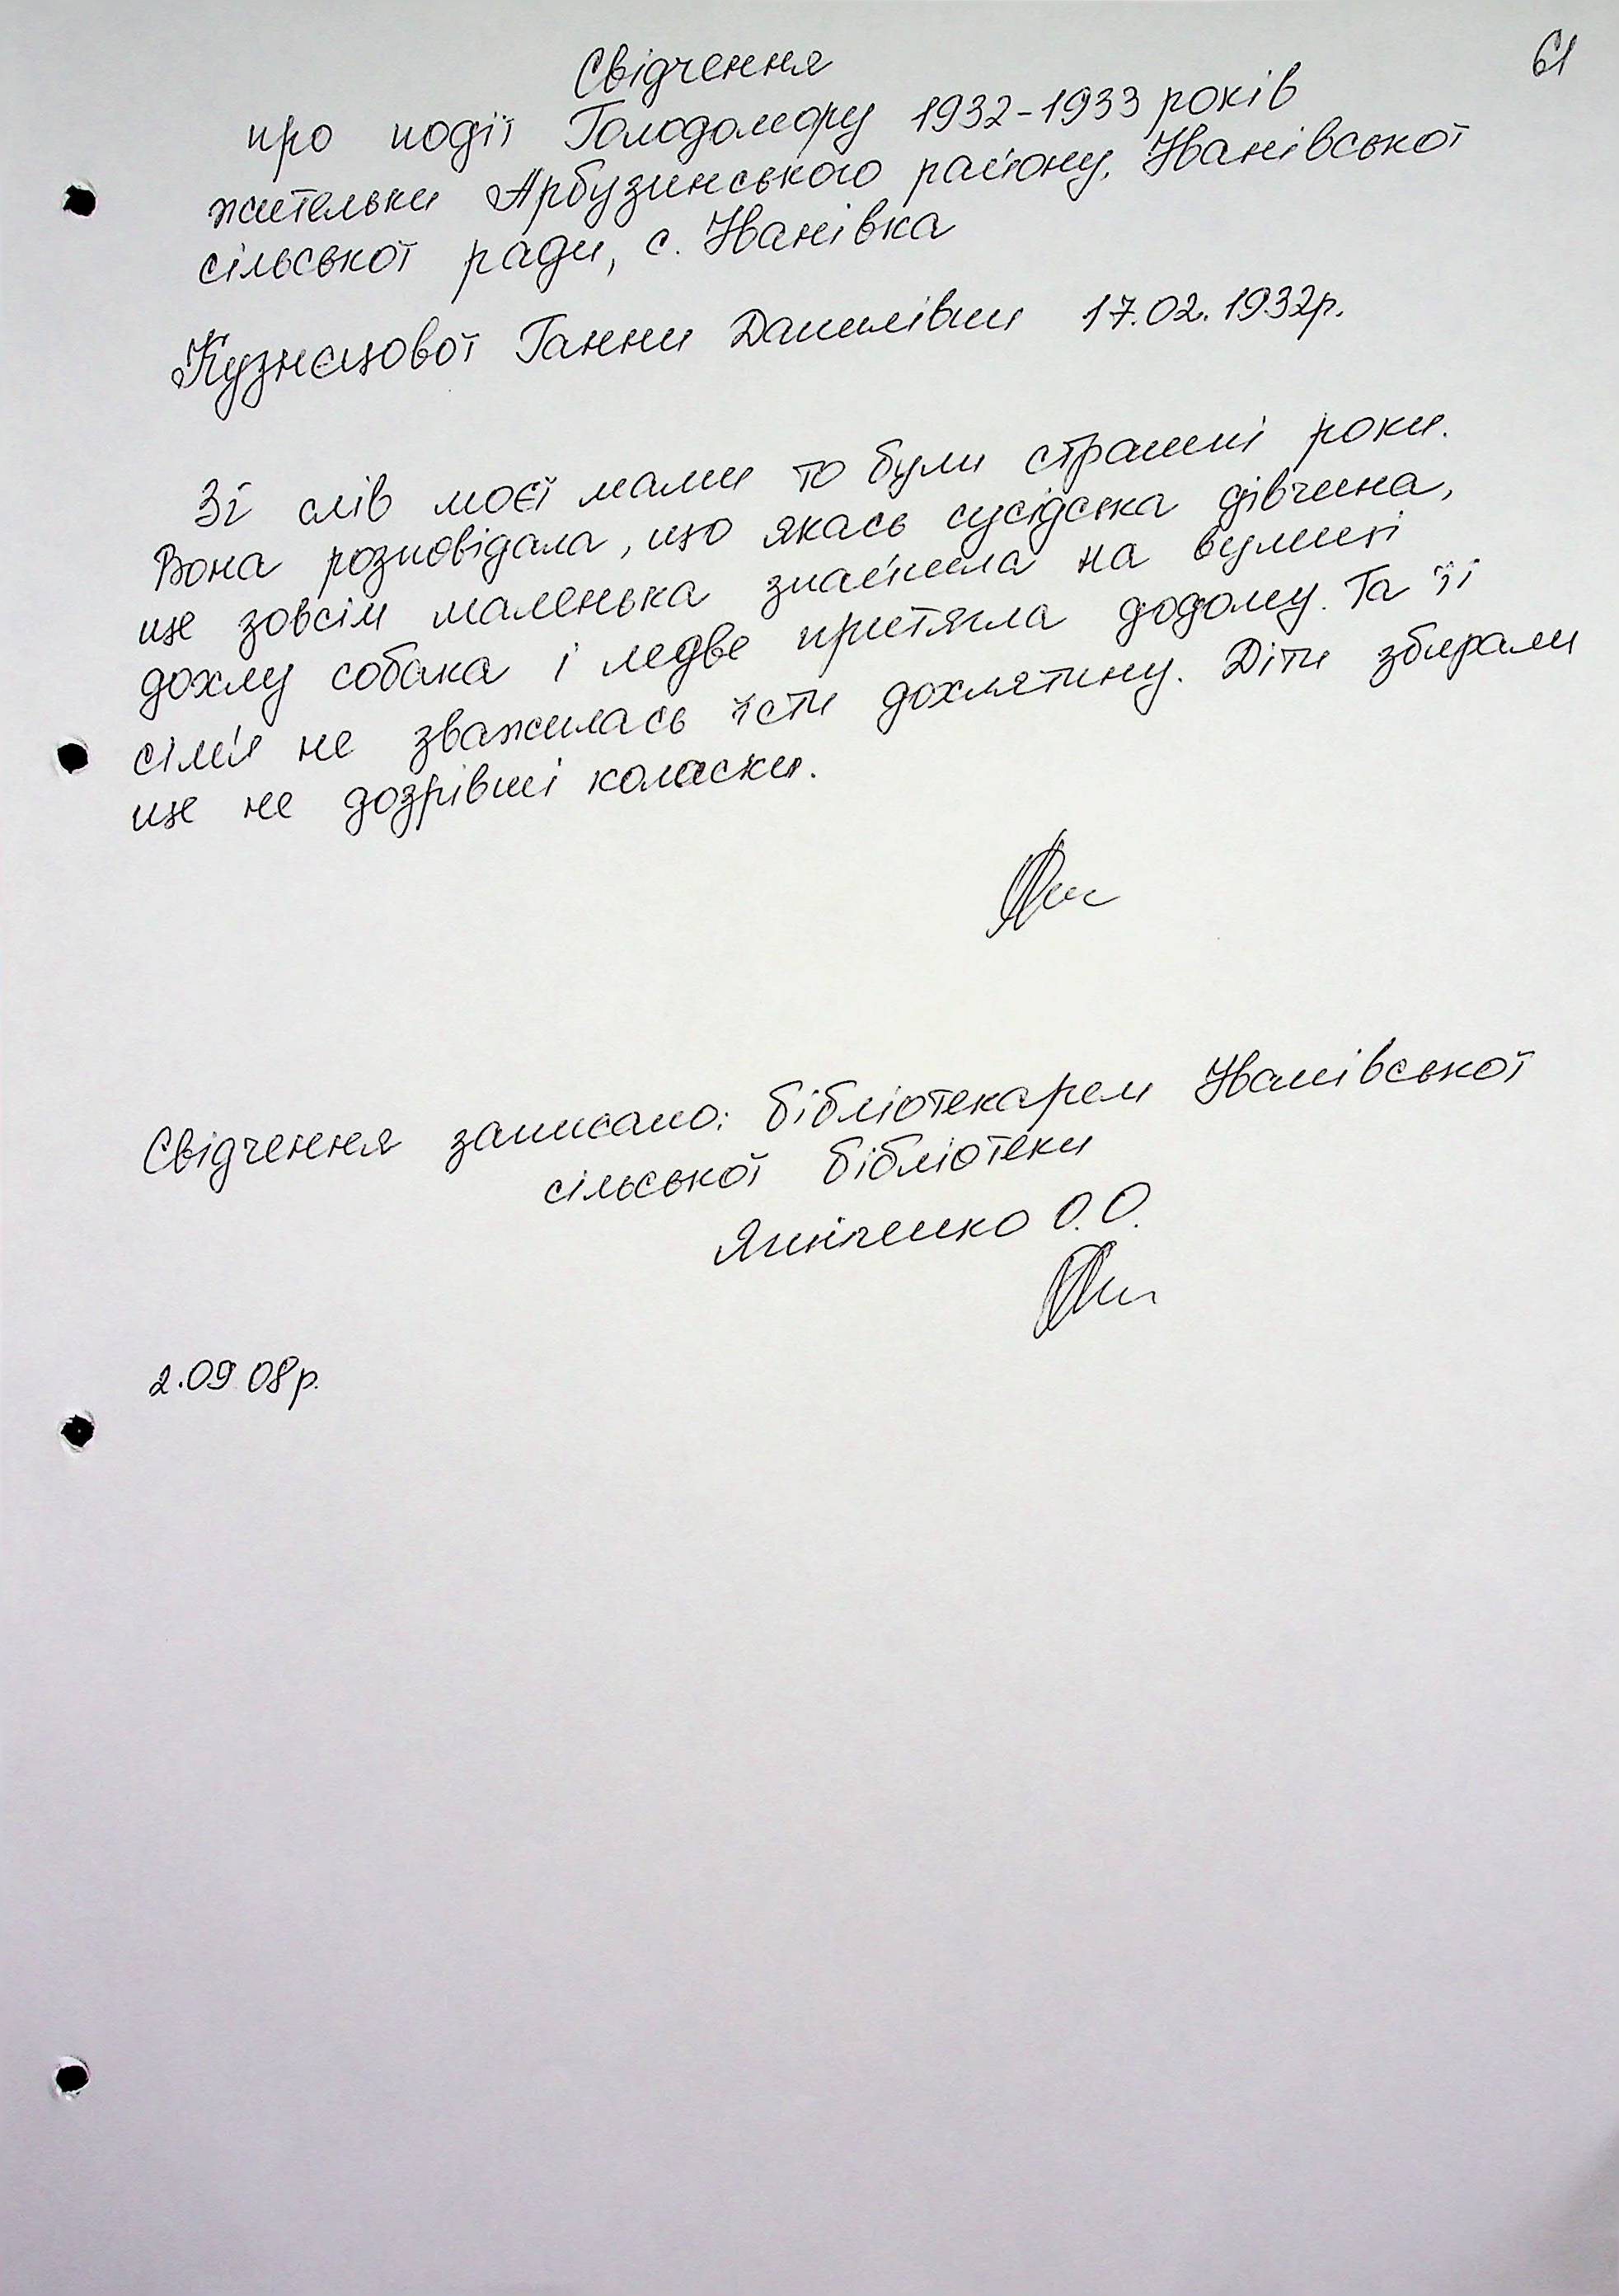 61
Свідчення
про події Голодомору 1932-1933 років
жительки Арбузинського району, Іванівської
сільської ради, с. Іванівка
Кузнєцової Ганни Данилівни 17.02.1932р.
Зі слів моєї мами то були страшні роки.
Вона розповідала, що якась сусідська дівчина,
ще зовсім маленька знайшла на вулиці
дохлу собака і ледве притягла додому. Та її
сім'я не зважилась їсти дохлятину. Діти збирали
ще не дозрівші колоски.
Свідчення записано: бібліотекарем Іванівської
сільської бібліотеки
О.О.
2.09 08р.